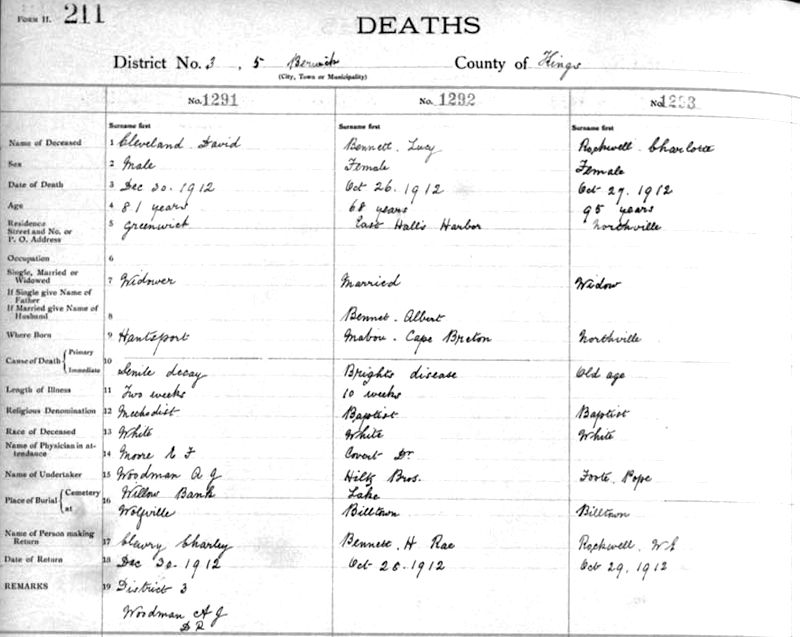 FORM H. 211
DEATHS
District No. 3, 5 Berwick County of Kings
(City, Town or Municipality)
No. 1291 No. 1292 No. 1293
Surname first Surname first Surname first
Name of Deceased 1 Cleveland David Bennett. Lucy Rockwell Charlota
Sex 2 Male Female Female
Date of Death 3 Dec 30. 1912 Oct 26. 1912 Oct 27. 1912
Age 4 81 years 68 years 95 years
Residence
Street and No. or
P. O. Address 5 Greenwich East Halls Harbor Northville
Occupation 6
Single, Married or
Widowed 7 Widower Married Widow
If Single give Name of
Father
If Married give Name of
Husband 8 Bennet. Albert
Where Born 9 Hantsport Mabou. Cape Breton Northville
Cause of Death { Primary
Immediate 10 Senile decay Brights disease Old age
Length of Illness 11 Two weeks 10 weeks
Religious Denomination 12 Methodist Baptist Baptist
Race of Deceased 13 White White White
Name of Physician in at-
tendance 14 Moore E F Covert Dr.
Name of Undertaker 15 Woodman A J Hiltz Bros. Foote, Pope
Place of Burial { Cemetery 16 Willow Bank Lake
at Wolfville Billtown Billtown
Name of Person making
Return 17 Charley Bennett. H Rae Rockwell. W
Date of Return 18 Dec 30. 1912 Oct 28. 1912 Oct 29. 1912
REMARKS 19 District 3
Woodman A J
D R